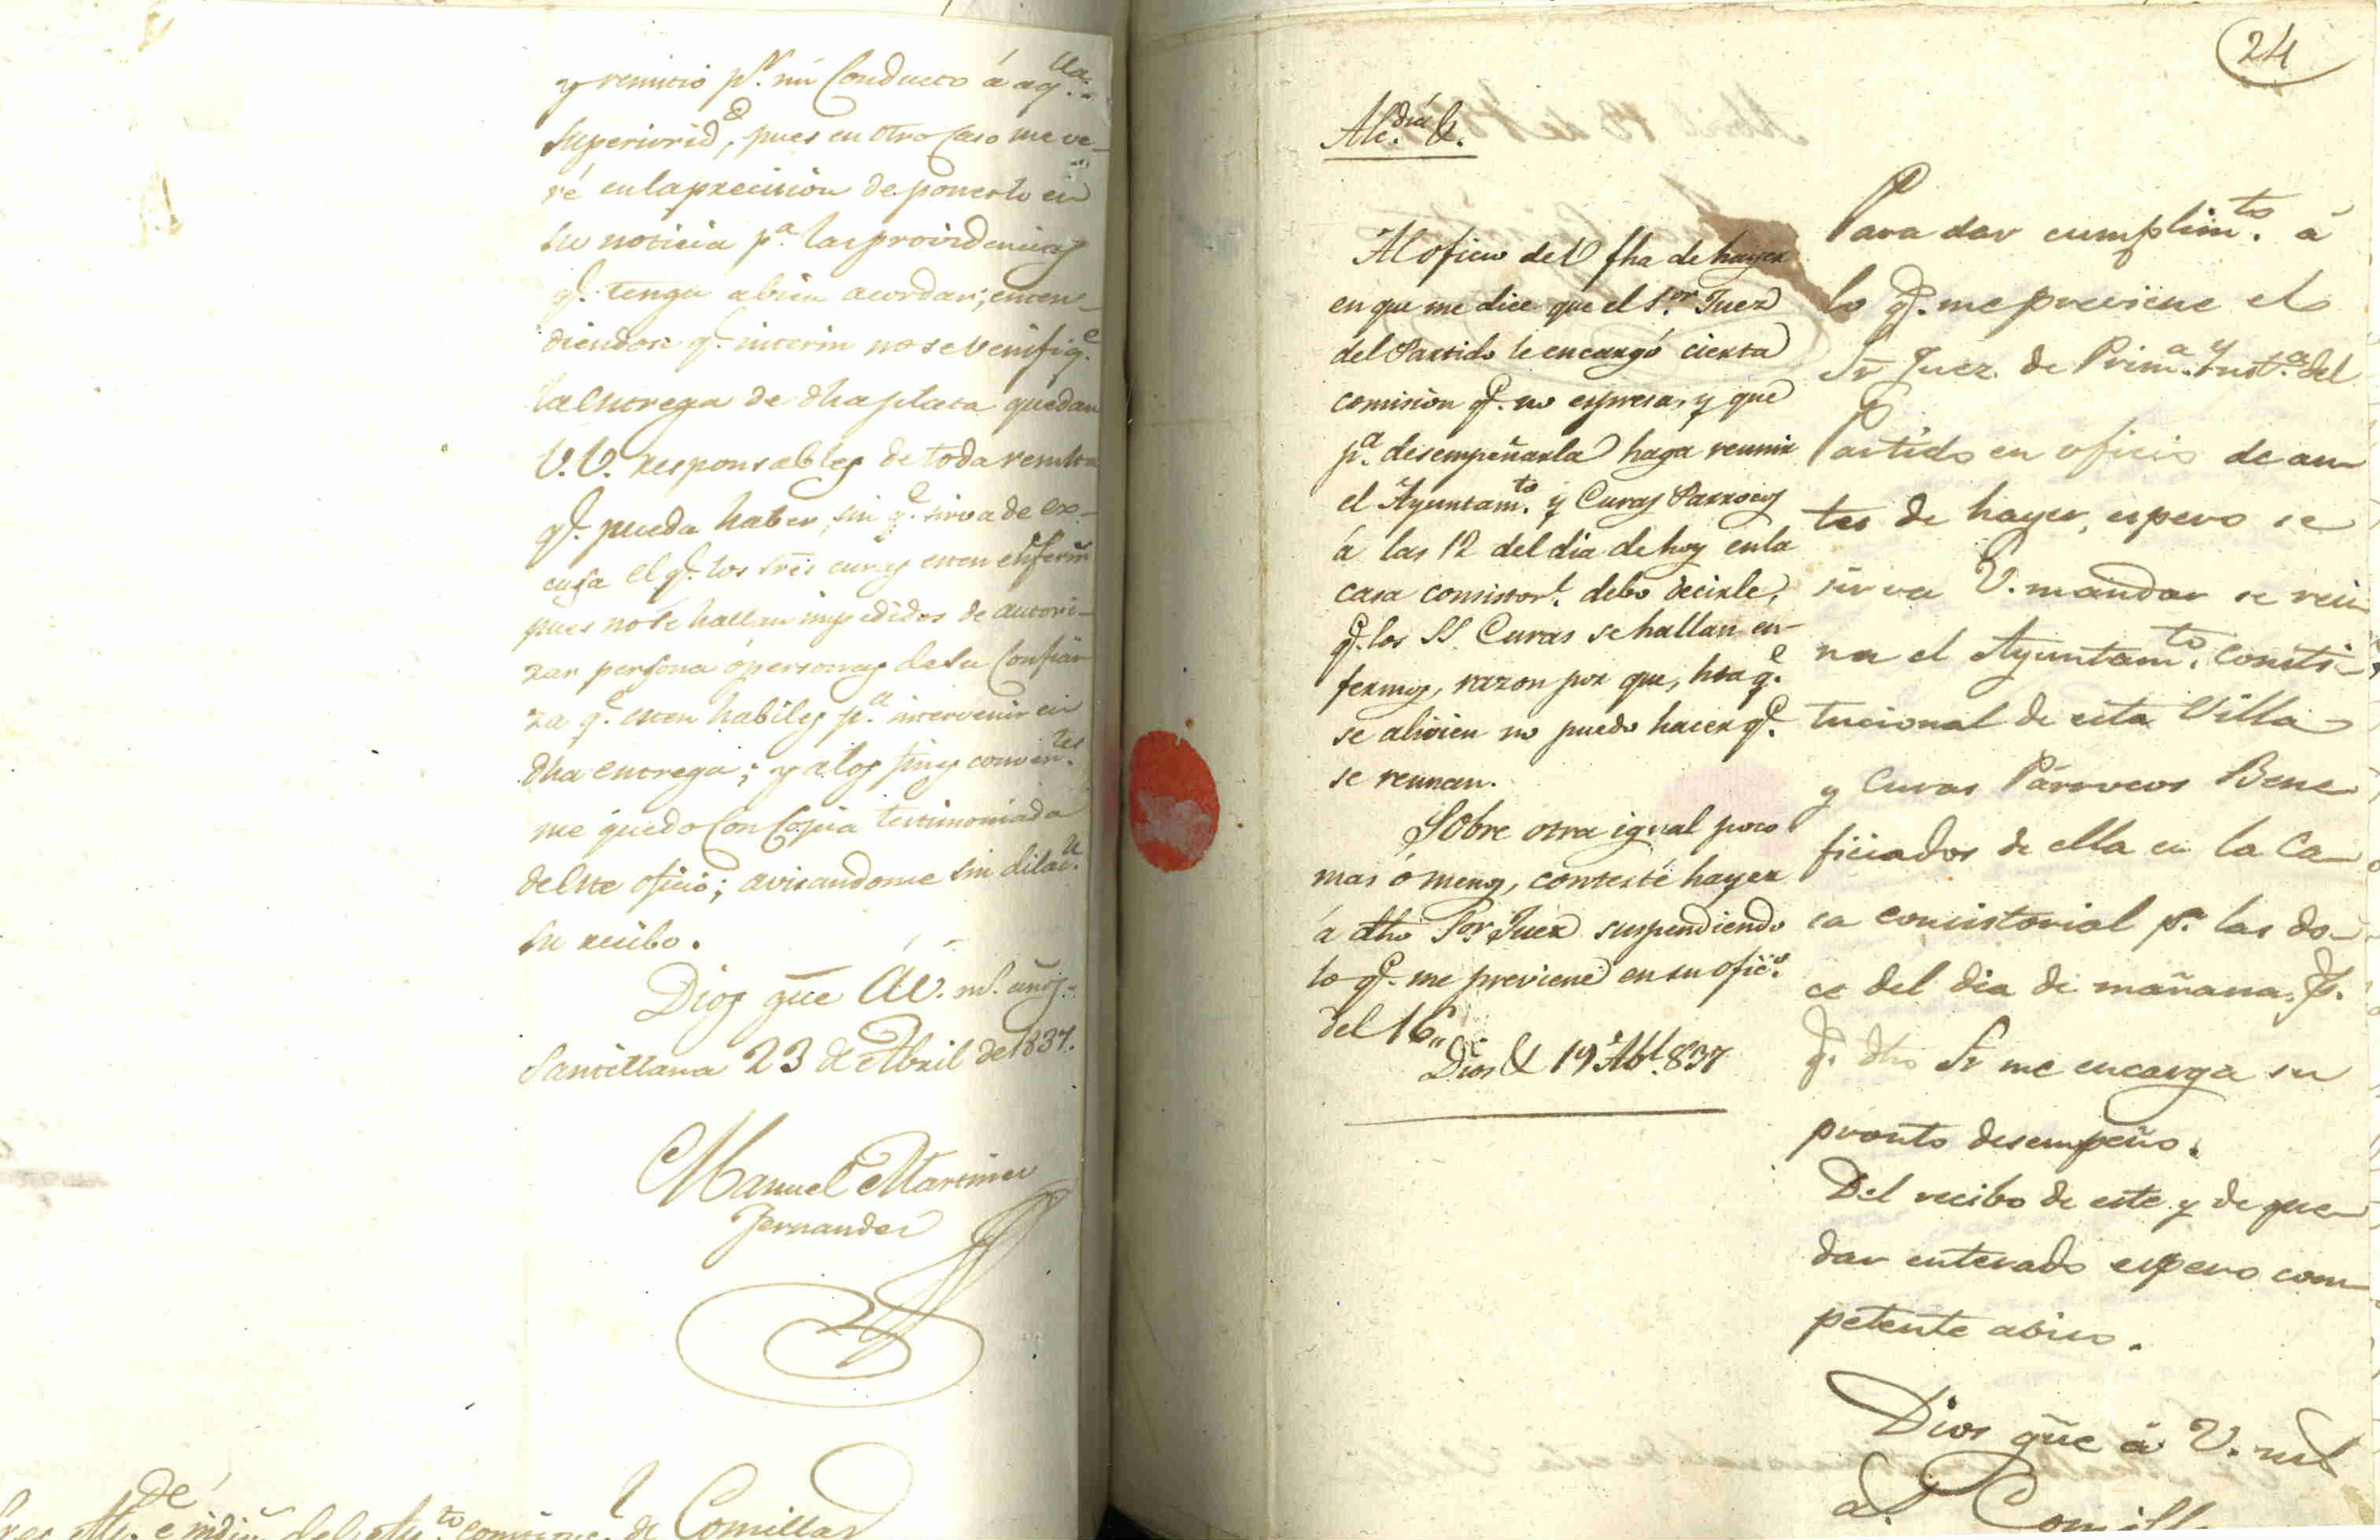 y remitio pr. mi Conducto á aqlla.
Superiorid, pues en otro Caso me ve-
ré en la precision de ponerlo en
su noticia pa. las providencias
qe. tenga abien acordar; enten-
diendose qe. interin no se verifiqe.
la entrega de dha plata quedan
V.V. responsables de toda resulta
qe. pueda haber, sin qe. sirva de ex-
cusa el qe. los Sres curas esten enferm
pues no se hallan impedidos de autori-
zar persona ó personas de su Confian
za qe. esten habiles pa. intervenir en
dha entrega; y alos fines conventes.
me quedo Con Copia testimoniada
de este oficio; avisandome sin dilacn.
su recibo.
Dios gue Á V. ms. años.
Santillana 23 de Abril de 1837.
Manuel Martinez
Fernandez
de Comillas
24
Alcdia. &.
Al oficio de V fha de hayer
en que me dice que el Sor. Juez
del Partido le encargó cierta
comision qe. no espresa, y que
pa. desempeñarla haga reunir
el Ayuntamto. y Curas Parrocos
á las 12 del dia de hoy en la
casa consistorl. debo decirle,
qe. los SS. Curas se hallan en-
fermos, razon por que, hta qe.
se alivien no puedo hacer qe.
se reunan.
Sobre otra igual poco
mas ó menos, contesté hayer
á dho Sor. Juez suspendiendo
lo qe. me previene en su ofico.
del 16,,
Dios & 19 Abl. 837
Para dar cumplimto. á
lo qe. me previene el
Sr Juez de Prima. Ynsta. del
Partido en oficio de an-
tes de hayer, espero se
sirva V. mandar se reu-
na el Ayuntamto. consti-
tucional de esta Villa
y Curas Párrocos Bene-
ficiados de ella en la Ca-
sa concistorial pa. las do-
ce del dia de mañana, ps.
qe. dho Sr me encarga su
pronto desempeño.
Del recibo de este y de que-
dar enterado espero com-
petente abiso.
Dios gue á V. ms
as. Comill